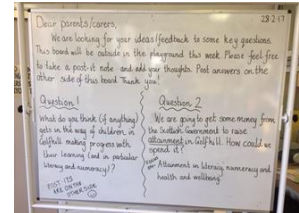 28.2.17
Dear parents/carers,
We are looking for your ideas/feedback to some key questions.
This board will be outside in the playground this week. Please feel free
to take a post-it note and add your thoughts. Post answers on the
other side of this board. Thank you!
Question 1
What do you think (if anything)
gets in the way of children in
Golfhill making progress with
their learning (and in particular
literacy and numeracy)?
POST-ITS
ARE ON THE
OTHER SIDE
Question 2
We are going to get some money from
the Scottish Government to raise
attainment in Golfhill. How could we
spend it?
Attainment in literacy, numeracy and
health and wellbeing